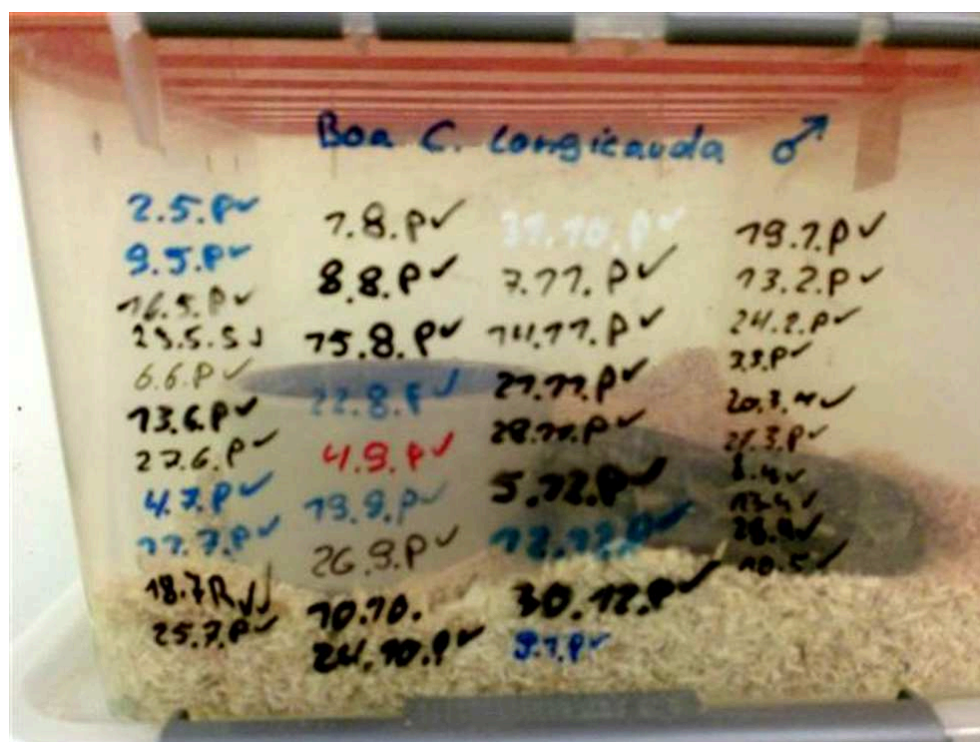 Boa C. Longicauda ♂
2.5.P✓
9.5.P✓
16.5.P✓
23.5.S✓
6.6.P✓
13.6.P✓
27.6.P✓
4.7.P✓
11.7.P✓
18.7R✓✓
25.7.P✓
1.8.P✓
8.8.P✓
15.8.P✓
22.8.P✓
4.9.P✓
19.9.P✓
26.9.P✓
10.10.
24.10.P✓
31.10.P✓
7.11.P✓
14.11.P✓
21.11.P✓
28.11.P✓
5.12.P✓
12.12.P✓
30.12.P✓
9.1.P✓
19.1.P✓
13.2.P✓
24.2.P✓
3.3.P✓
20.3.M✓
28.3.P✓
8.4.✓
13.4✓
28.4✓
10.5✓